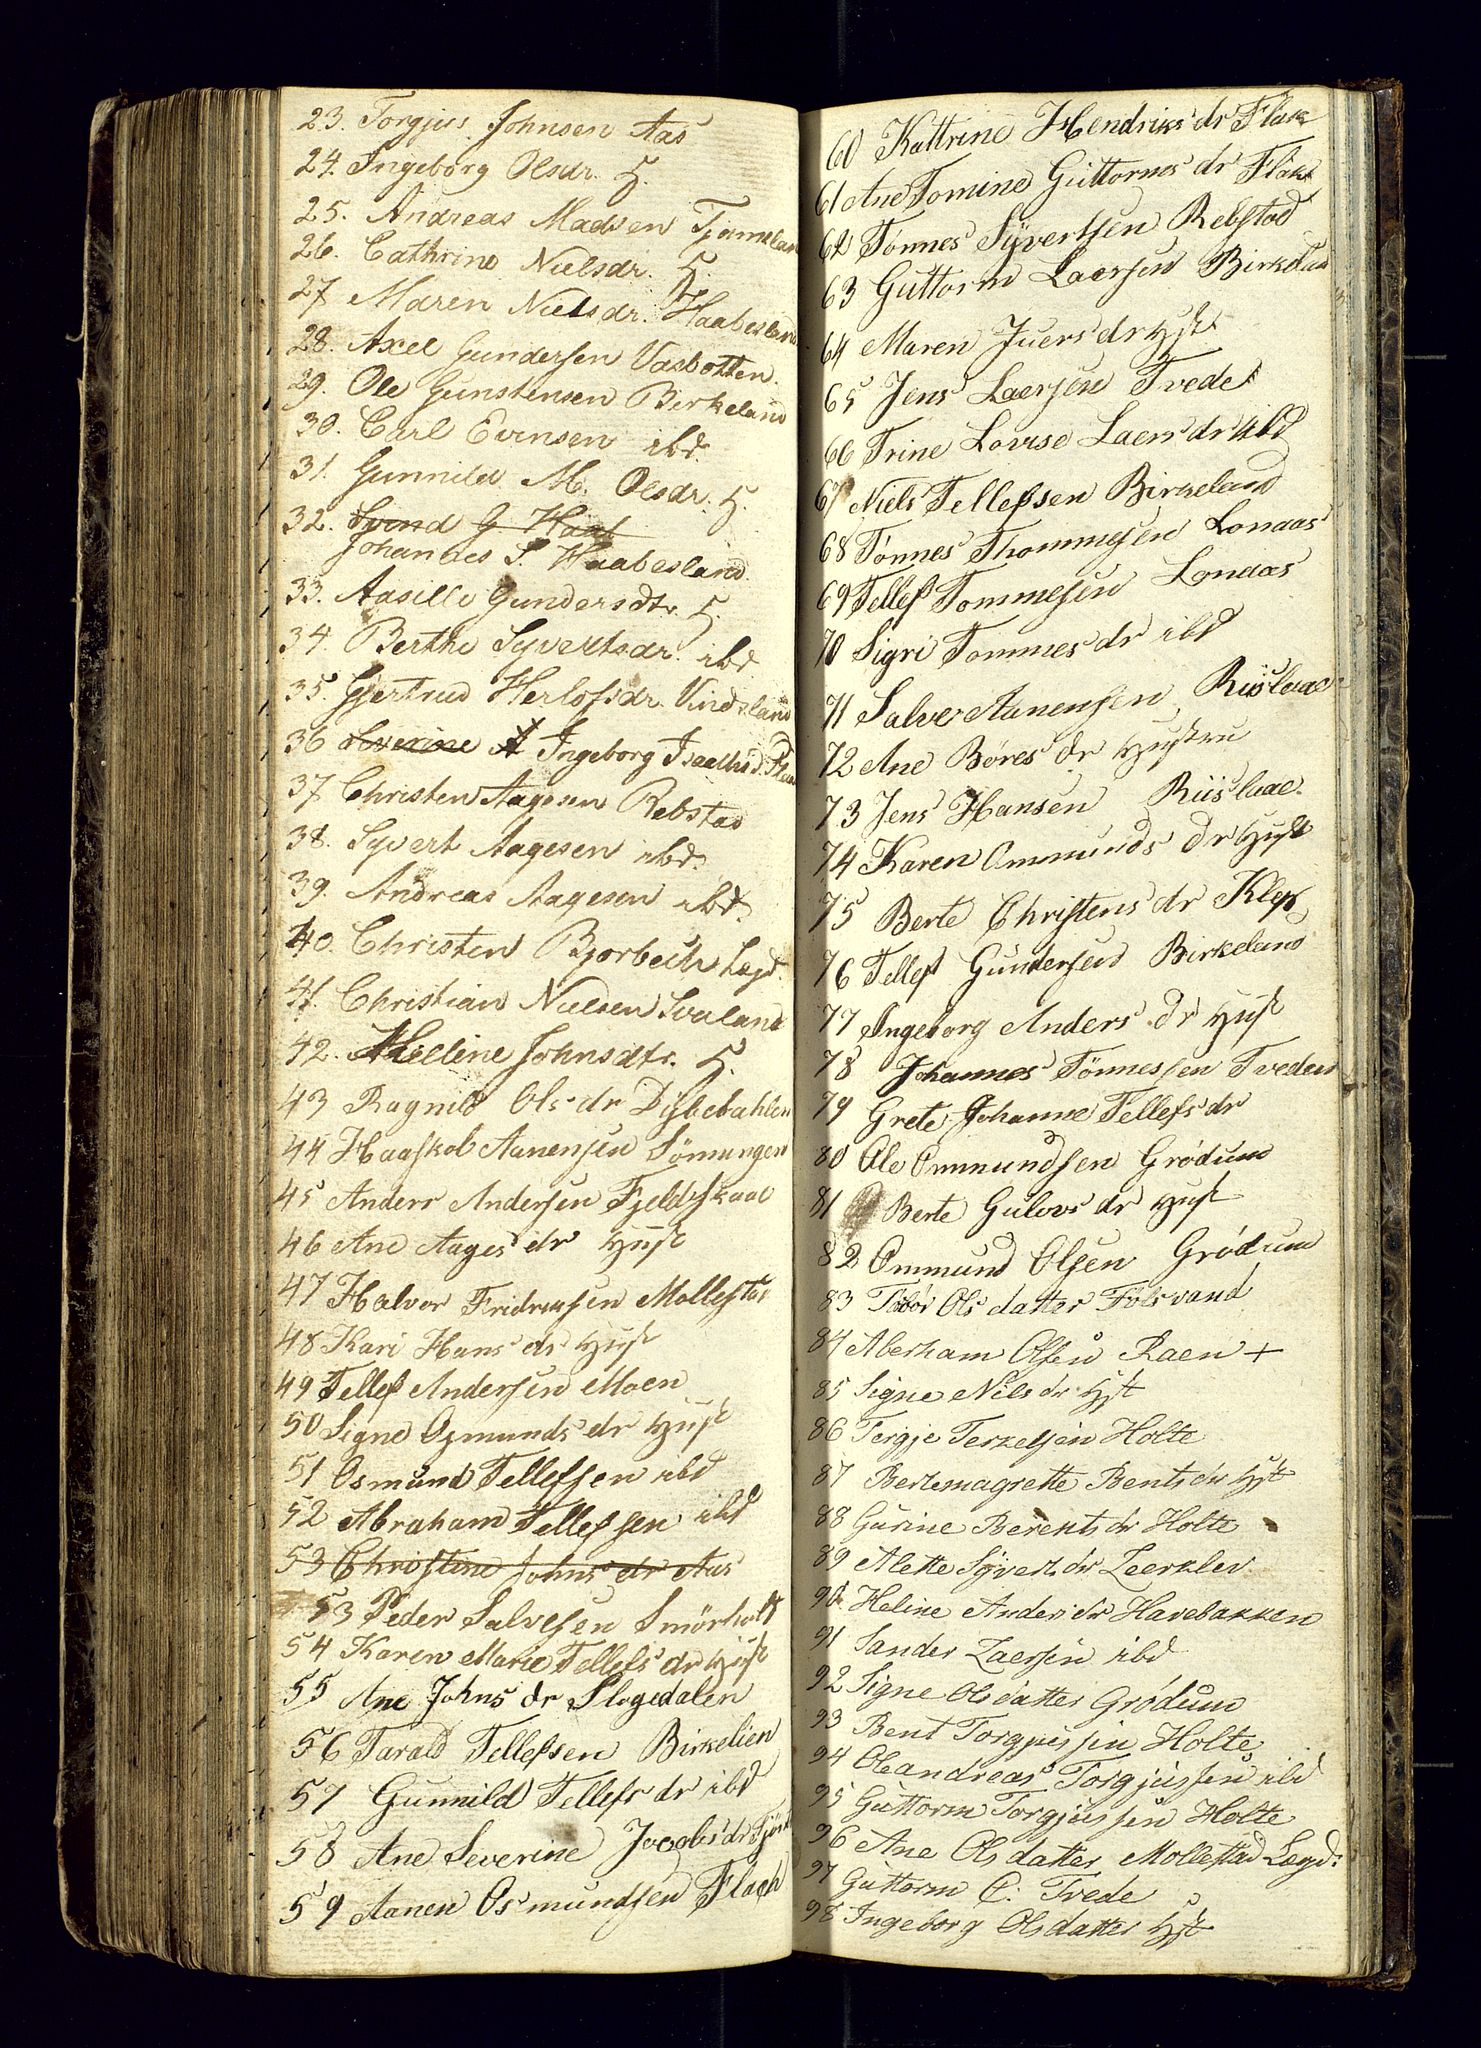 23. Torgjus Johnsen Aas
24. Ingeborg Olsdr. H.
25. Andreas Madsen Tjomeland
26. Cathrine Nielsdr. H.
27 Maren Nielsdr. Haabesland
28. Axel Gundersen Vasbotten.
29. Ole Gunstensen Birkeland
30. Carl Evensen ibd.
31. Gunnild M. Olsdr. H.
32. Svend G. Haab
Johannes S. Haabesland.
33. Aasille Gundersdtr. H.
34. Berthe Syvertsdr. ibd
35. Gjertrud Herlofsdr. Vindsland
36 Ingeborg
37 Christen Aagesen Rebstad
38. Syvert Aagesen ibd.
39. Andreas Aagesen ibd.
40. Christen Bjorbech Lagd.
41. Christian Nielsen Svaland
42. Helene Johnsdtr. H.
43 Ragnild Ols dr Dybedahlen
44 Haaskol Aanensen
45 Anders Andersen Fjeldskaae
46 Ane Aages dr Hust
47 Halvor Fridrensen Mollestad
48 Kari Hans dr Hust
49 Tellef Andersen Moen
50 Signe Osmunds dr Hust
51 Osmund Tellefsen ibd
52 Abraham Tellefsen ibd
53 Christine Johns dr Aas
53 Peder Salvesen Smörholt
54 Karen Marie Tellefs dr Hust
55 Ane Johns dr Slogedalen
56 Tarald Tellefsen Birkelien
57 Gunnild Tellefs dr ibd
58 Ane Severine Jacobs dr
59 Aanen Osmundsen Flach
60 Kattrine Hendriks dr Flak
61 Ane Tomine Guttorms dr Flak
62 Tönnes Syvertsen Rebstad
63 Guttorm Laersen Birkeland
64 Maren Juers dr Hst
65 Jens Laersen Tvede
66 Trine Lovise Laers dr ibd
67 Niels Tellefsen Birkeland
68 Tönnes Thommesen Lonaas
69 Tellef Tommesen Lonaas
70 Sigri Tommes dr ibd
71 Salve Aanensen Riislaae
72 Ane Böres dr Hustru
73 Jens Hansen Riislaae
74 Karen Ommunds dr Hust
75 Berte Christens dr Klep
76 Tellef Gundersen Birkeland
77 Ingeborg Anders dr Hust
78 Johannes Tönnessen Tveden
79 Grete Johanne Tellefs dr
80 Ole Ommundsen Grödum
81 Berte Gulovs dr Hust
82 Ommund Olsen Grödum
83 Tobör Ols datter Fölsvand
84 Aberham Olsen Raen +
85 Signe Nils dr Hst
86 Tergje Terkelsen Holte
87 Bertemagrette Bents dr Hst
88 Gurine Berents dr Holte
89 Alette Syverts dr Leerklev
90 Heline Anders dr Havebakken
91 Sander Laersen ibd
92 Signe Olsdatter Grödum
93 Bent Torgjussen Holte
94 Oleandreas Torgjussen ibd
95 Guttorm Torgjussen Holte
96 Ane Ols datter Mollestad Lægd:
97 Guttorm C. Tvede
98 Ingeborg Olsdatter Hst